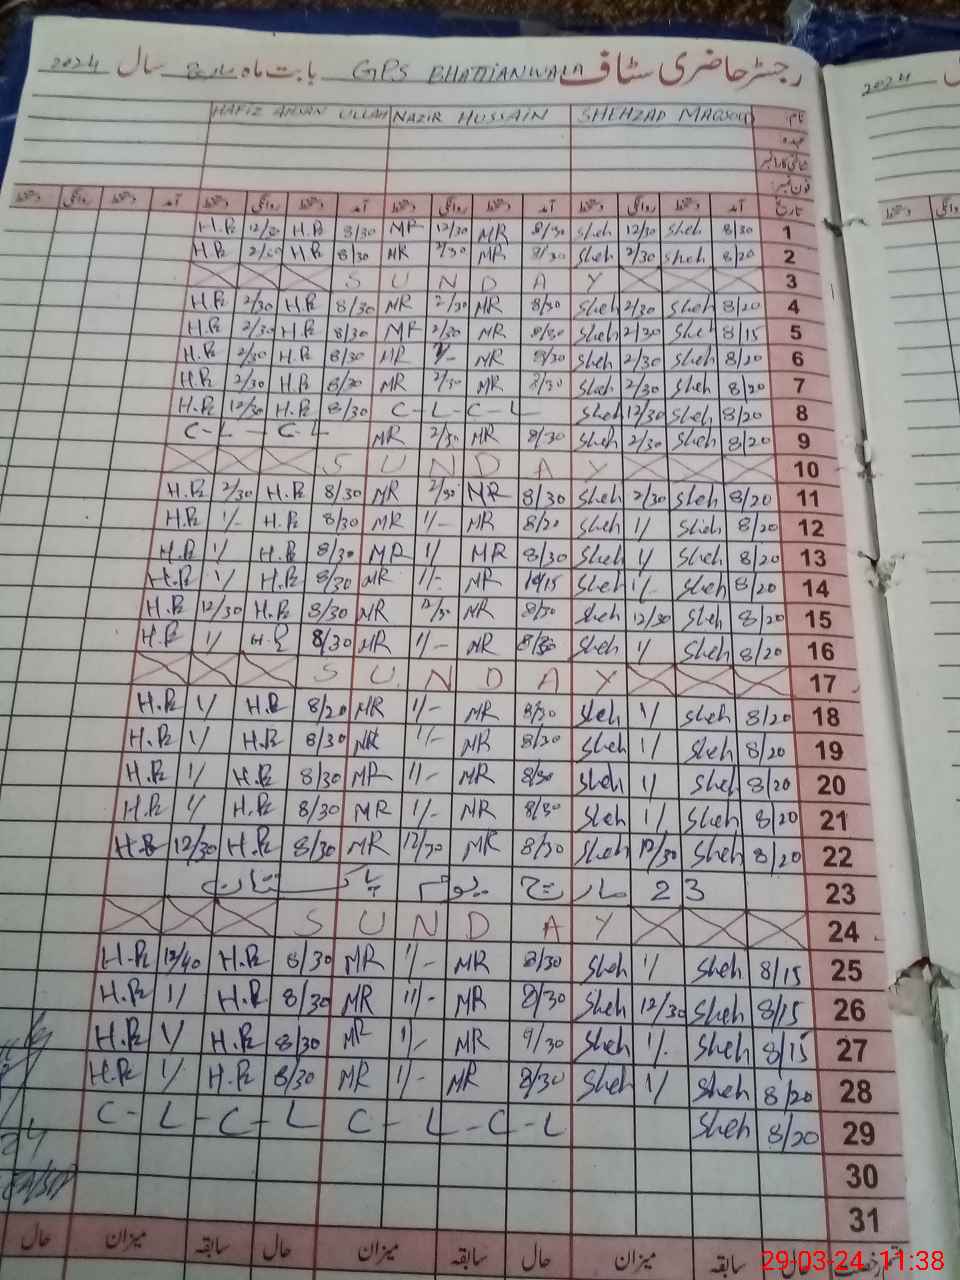 رجسٹر حاضری سٹاف GPS BHATTIANWALA بابت ماہ مارچ سال 2024
نام: SHEHZAD MAQSOOD NAZIR HUSSAIN HAFIZ AHSAN ULLAH
عہدہ
شناختی کارڈ نمبر
فون نمبر:
تاریخ آمد دستخط روانگی دستخط آمد دستخط روانگی دستخط آمد دستخط روانگی دستخط آمد دستخط روانگی دستخط
H.R 12/30 H.R 8/30 MR 12/30 MR 8/30 Sheh 12/30 Sheh 8/30 1
H.R 2/30 H.R 8/30 MR 2/30 MR 8/30 Sheh 2/30 Sheh 8/20 2
S U N D A Y 3
H.R 2/30 H.R 8/30 MR 2/30 MR 8/30 Sheh 2/30 Sheh 8/20 4
H.R 2/30 H.R 8/30 MR 2/30 MR 8/30 Sheh 2/30 Sheh 8/15 5
H.R 2/30 H.R 8/30 MR MR 8/30 Sheh 2/30 Sheh 8/20 6
H.R 2/30 H.R 8/30 MR 2/30 MR 8/30 Sheh 2/30 Sheh 8/20 7
H.R 12/30 H.R 8/30 C - L - C - L Sheh 12/30 Sheh 8/20 8
C - L - C - L MR 2/30 MR 8/30 Sheh 2/30 Sheh 8/20 9
S U N D A Y 10
H.R 2/30 H.R 8/30 MR 2/30 MR 8/30 Sheh 2/30 Sheh 8/20 11
H.R 1/- H.R 8/30 MR 1/- MR 8/20 Sheh 1/ Sheh 8/20 12
H.R 1/ H.R 8/30 MR 1/- MR 8/30 Sheh 1/ Sheh 8/20 13
H.R 1/ H.R 8/30 MR 1/- MR 10/15 Sheh 1/- Sheh 8/20 14
H.R 12/30 H.R 8/30 MR 12/30 MR 8/30 Sheh 12/30 Sheh 8/20 15
H.R 1/ H.R 8/30 MR 1/- MR 8/30 Sheh 1/ Sheh 8/20 16
S U N D A Y 17
H.R 1/ H.R 8/20 MR 1/- MR 8/30 Sheh 1/ Sheh 8/20 18
H.R 1/ H.R 8/30 MR 1/- MR 8/20 Sheh 1/ Sheh 8/20 19
H.R 1/ H.R 8/30 MR 1/- MR 8/30 Sheh 1/ Sheh 8/20 20
H.R 1/ H.R 8/30 MR 1/- MR 8/30 Sheh 1/ Sheh 8/20 21
H.R 12/30 H.R 8/30 MR 12/30 MR 8/30 Sheh 12/30 Sheh 8/20 22
23 مارچ یوم پاکستان 23
S U N D A Y 24
H.R 12/40 H.R 8/30 MR 1/- MR 8/30 Sheh 1/ Sheh 8/15 25
H.R 1/ H.R 8/30 MR 1/- MR 8/30 Sheh 12/30 Sheh 8/15 26
H.R 1/ H.R 8/30 MR 1/- MR 9/30 Sheh 1/- Sheh 8/15 27
H.R 1/ H.R 8/30 MR 1/- MR 8/30 Sheh 1/ Sheh 8/20 28
C - L - C - L C - L - C - L Sheh 8/20 29
30
31
حال سابقہ میزان حال سابقہ میزان حال سابقہ میزان حال
2024
29-03-24 11:38